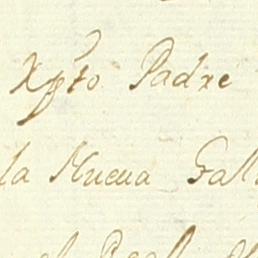 Xpto Padre
la Nueua Gali
el Real